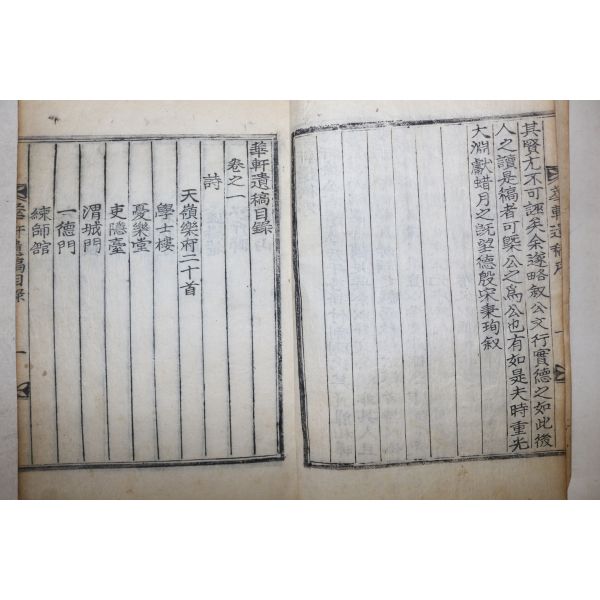 華軒遺稿序
一
其賢尤不可誣矣余遂略叙公文行實德之如此後
人之讀是稿者可槩公之爲公也有如是夫時重光
大淵獻蜡月之旣望德殷宋秉珣叙
華軒遺稿目錄
卷之一
詩
天嶺樂府二十首
學士樓
憂樂堂
吏隱臺
渭城門
一德門
練師舘
華軒遺稿目錄
一